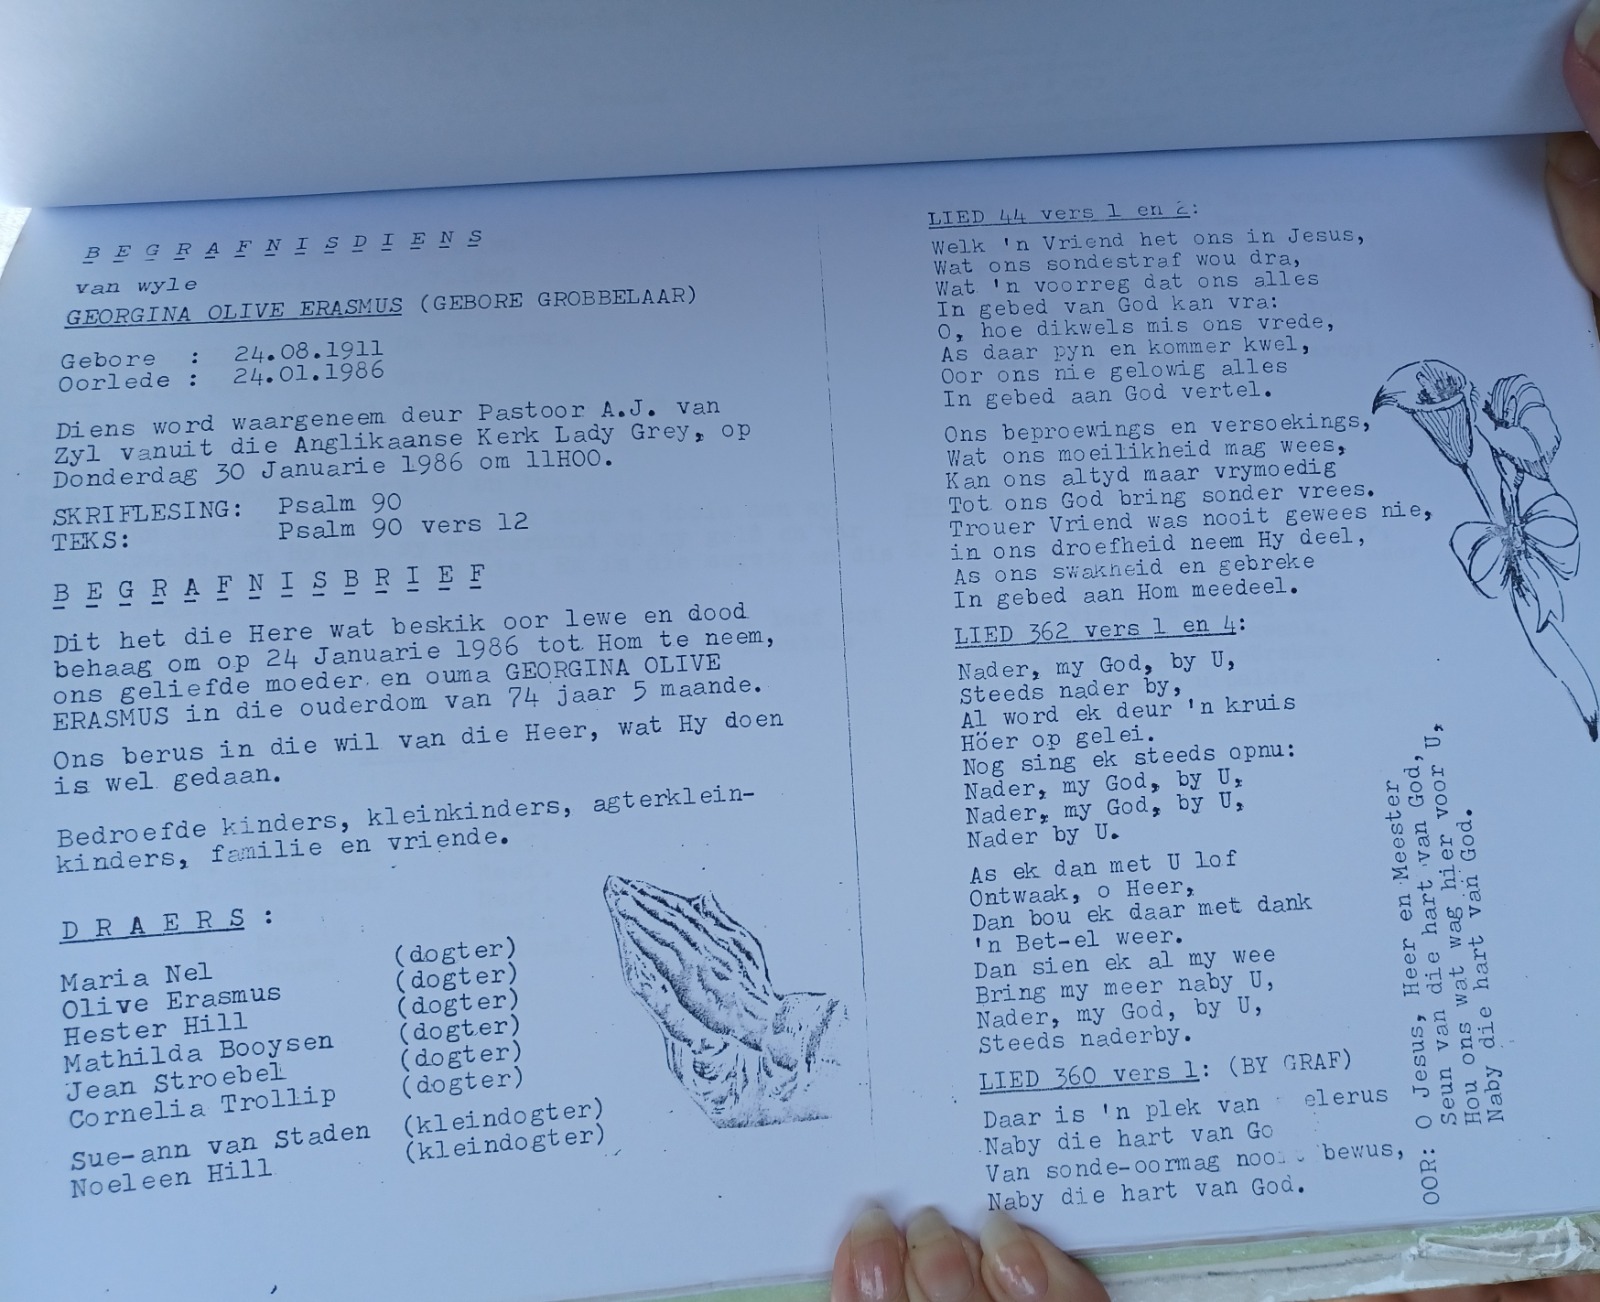 B E G R A F N I S D I E N S
van wyle
GEORGINA OLIVE ERASMUS (GEBORE GROBBELAAR)
Gebore : 24.08.1911
Oorlede : 24.01.1986
Diens word waargeneem deur Pastoor A.J. van
Zyl vanuit die Anglikaanse Kerk Lady Grey, op
Donderdag 30 Januarie 1986 om 11H00.
SKRIFLESING: Psalm 90
TEKS: Psalm 90 vers 12
B E G R A F N I S B R I E F
Dit het die Here wat beskik oor lewe en dood
behaag om op 24 Januarie 1986 tot Hom te neem,
ons geliefde moeder en ouma GEORGINA OLIVE
ERASMUS in die ouderdom van 74 jaar 5 maande.
Ons berus in die wil van die Heer, wat Hy doen
is wel gedaan.
Bedroefde kinders, kleinkinders, agterklein-
kinders, familie en vriende.
D R A E R S :
Maria Nel (dogter)
Olive Erasmus (dogter)
Hester Hill (dogter)
Mathilda Booysen (dogter)
Jean Stroebel (dogter)
Cornelia Trollip (dogter)
Sue-ann van Staden (kleindogter)
Noeleen Hill (kleindogter)
LIED 44 vers 1 en 2:
Welk 'n Vriend het ons in Jesus,
Wat ons sondestraf wou dra,
Wat 'n voorreg dat ons alles
In gebed van God kan vra:
O, hoe dikwels mis ons vrede,
As daar pyn en kommer kwel,
Oor ons nie gelowig alles
In gebed aan God vertel.
Ons beproewings en versoekings,
Wat ons moeilikheid mag wees,
Kan ons altyd maar vrymoedig
Tot ons God bring sonder vrees.
Trouer Vriend was nooit gewees nie,
in ons droefheid neem Hy deel,
As ons swakheid en gebreke
In gebed aan Hom meedeel.
LIED 362 vers 1 en 4:
Nader, my God, by U,
Steeds nader by,
Al word ek deur 'n kruis
Höer op gelei.
Nog sing ek steeds opnu:
Nader, my God, by U,
Nader, my God, by U,
Nader by U.
As ek dan met U lof
Ontwaak, o Heer,
Dan bou ek daar met dank
'n Bet-el weer.
Dan sien ek al my wee
Bring my meer naby U,
Nader, my God, by U,
Steeds naderby.
LIED 360 vers 1: (BY GRAF)
Daar is 'n plek van elerus
Naby die hart van Go
Van sonde-oormag noo bewus,
Naby die hart van God.
OOR: O Jesus, Heer en Meester
Seun van die hart van God,
Hou ons wat wag hier voor U,
Naby die hart van God.